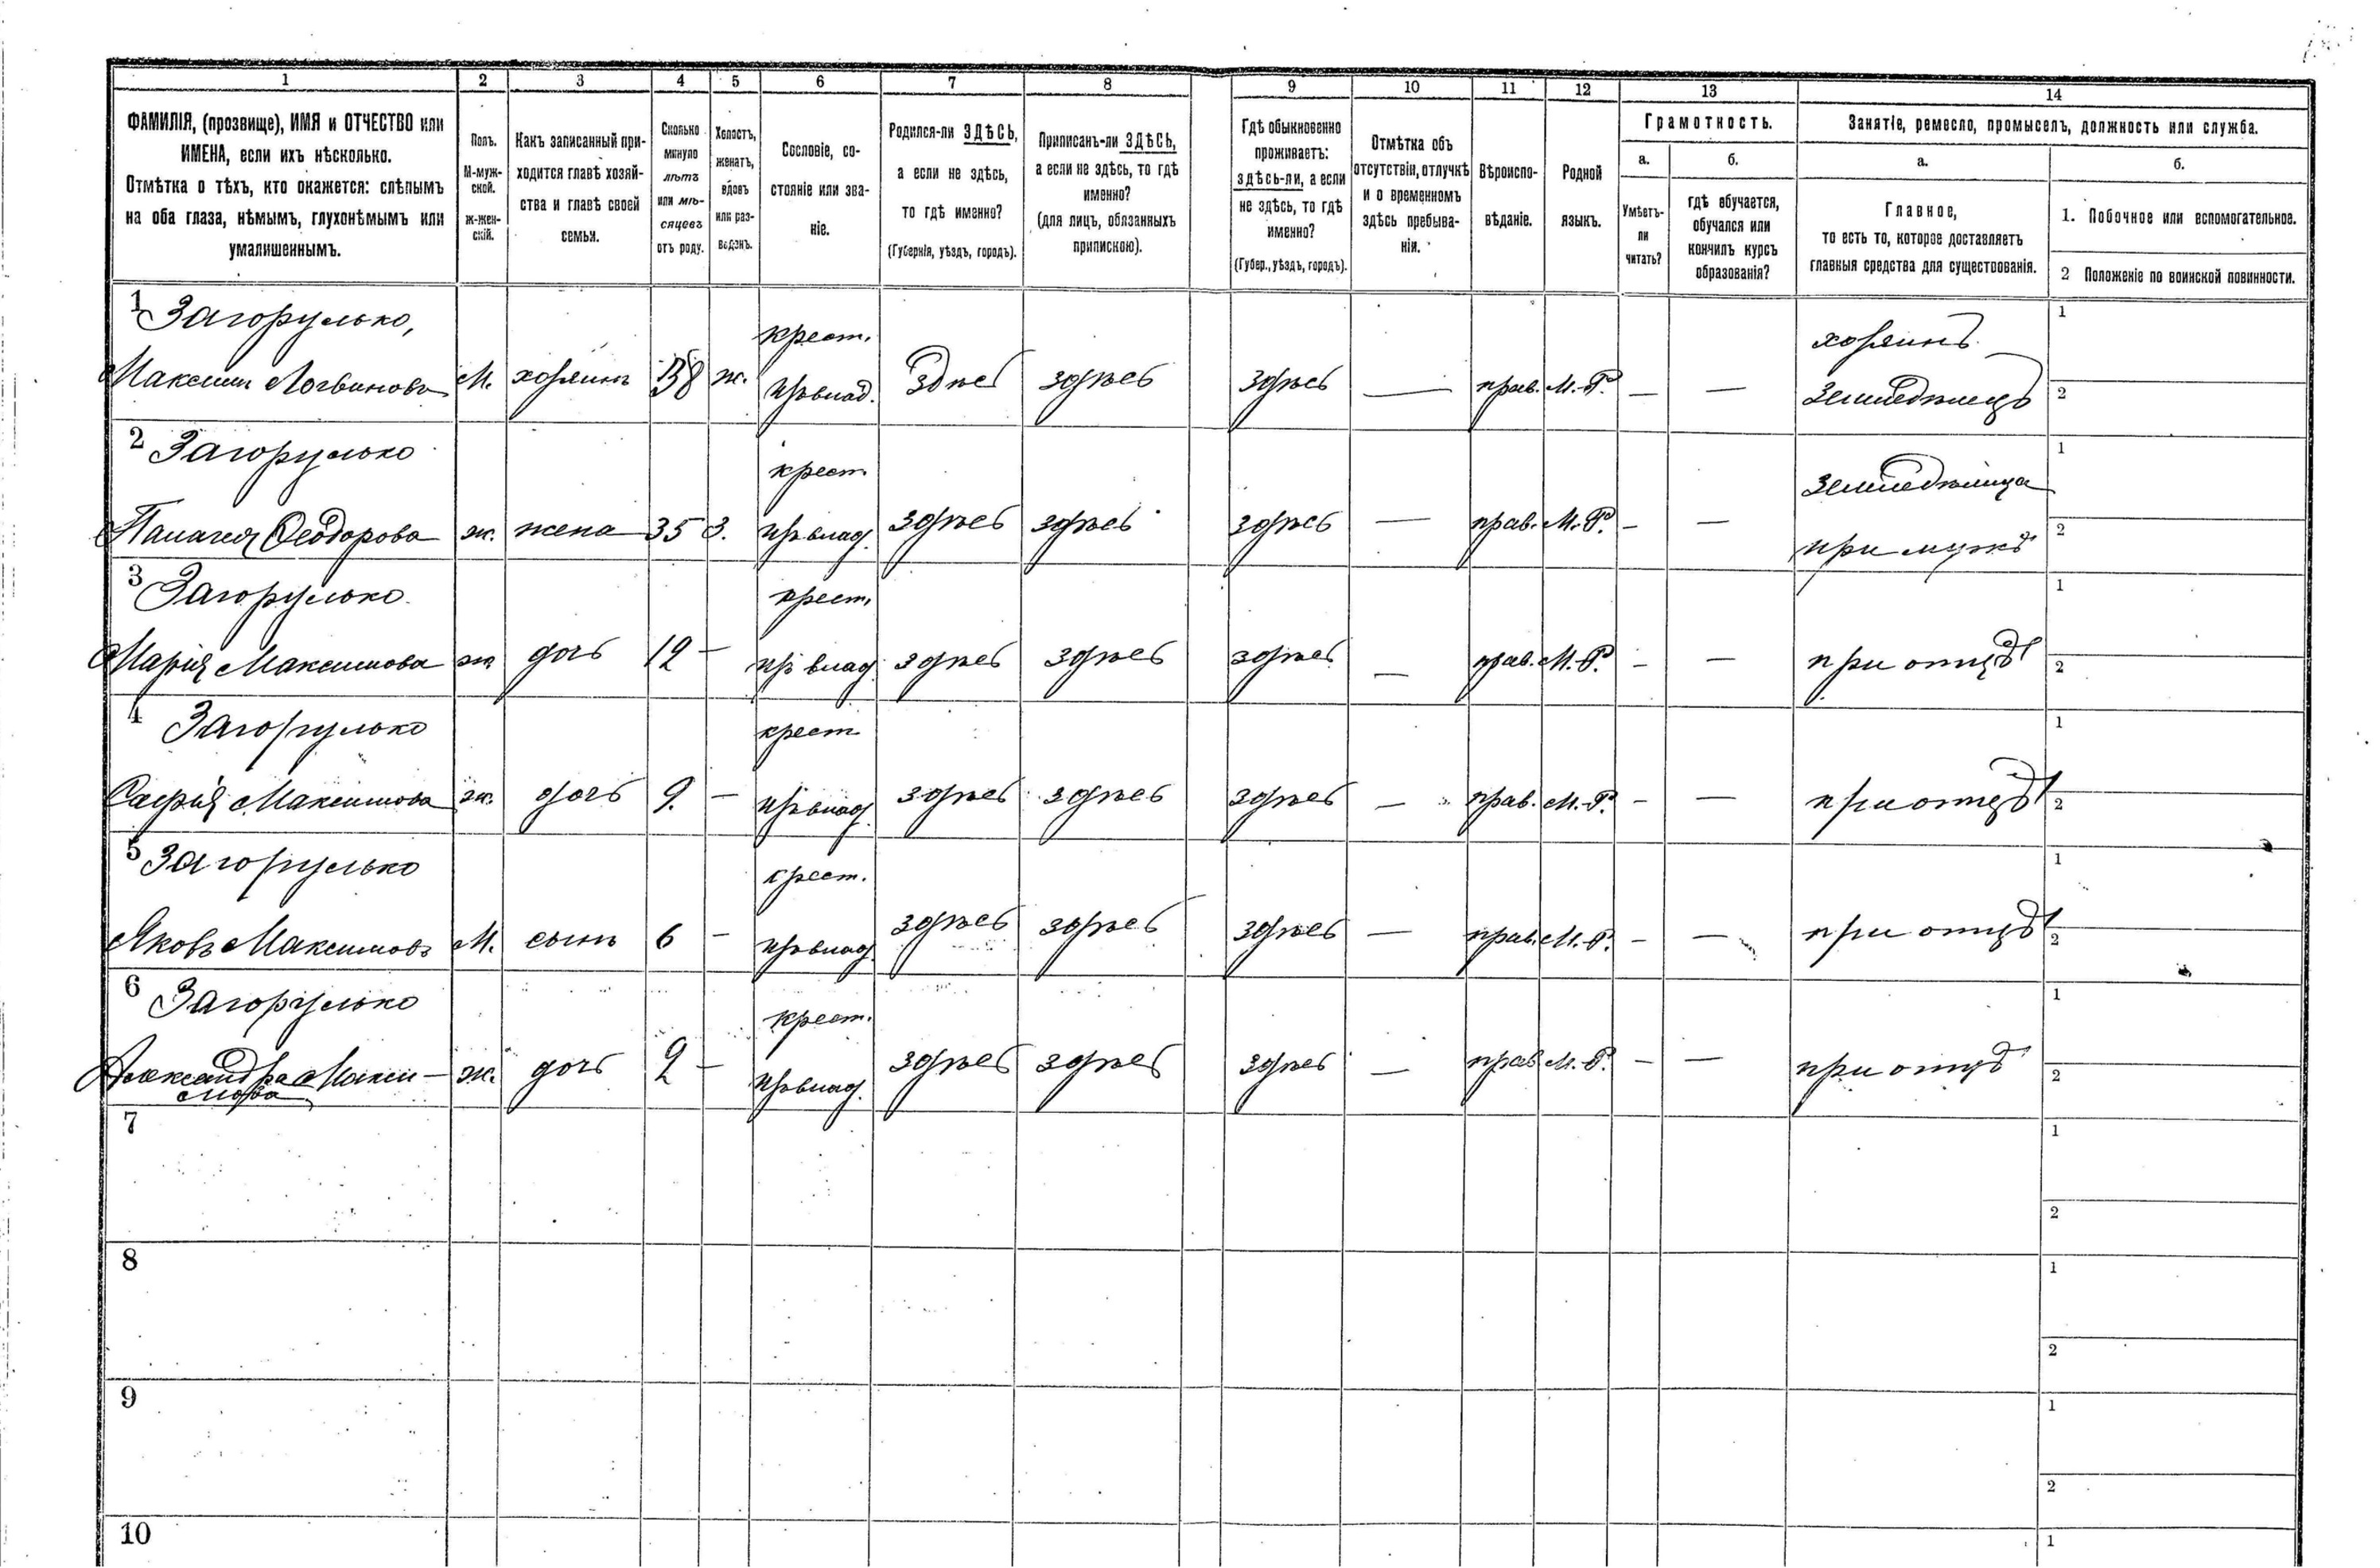 1 2 3 4 5 6 7 8 9 10 11 12 13 14
ФАМИЛІЯ, (прозвище), ИМЯ и ОТЧЕСТВО или
ИМЕНА, если ихъ нѣсколько.
Отмѣтка о тѣхъ, кто окажется: слѣпымъ
на оба глаза, нѣмымъ, глухонѣмымъ или
умалишеннымъ.
Полъ.
М-муж-
ской.
ж-жен-
скій.
Какъ записанный при-
ходится главѣ хозяй-
ства и главѣ своей
семьи.
Сколько
минуло
лѣтъ
или мѣ-
сяцевъ
отъ роду.
Холостъ,
женатъ,
вдовъ
или раз-
веденъ.
Сословіе, со-
стояніе или зва-
ніе.
Родился-ли ЗДѢСЬ,
а если не здѣсь,
то гдѣ именно?
(Губернія, уѣздъ, городъ).
Приписанъ-ли ЗДѢСЬ,
а если не здѣсь, то гдѣ
именно?
(для лицъ, обязанныхъ
припискою).
Гдѣ обыкновенно
проживаетъ:
здѣсь-ли, а если
не здѣсь, то гдѣ
именно?
(Губер., уѣздъ, городъ).
Отмѣтка объ
отсутствіи, отлучкѣ
и о временномъ
здѣсь пребыва-
ніи.
Вѣроиспо-
вѣданіе.
Родной
языкъ.
Грамотность.
а.
Умѣетъ-
ли
читать?
б.
гдѣ обучается,
обучался или
кончилъ курсъ
образованія?
Занятіе, ремесло, промыселъ, должность или служба.
а.
Главное,
то есть то, которое доставляетъ
главныя средства для существованія.
б.
1. Побочное или вспомогательное.
2 Положеніе по воинской повинности.
1 Загорулько, крест. хозяинъ 1
Максим Логвиновъ М. хозяинъ 38 ж. здѣсь здѣсь здѣсь — прав. М.-Р. — — Земледѣлецъ 2
2 Загорулько крест. Земледѣлица 1
Палагея Феодорова ж. жена 35 З. здѣсь здѣсь здѣсь — прав. М.-Р. — — при мужѣ 2
3 Загорулько крест. 1
Марія Максимова ж дочь 12 — здѣсь здѣсь здѣсь — прав. М.-Р. — — при отцѣ 2
4 Загорулько крест 1
Софія Максимова ж. дочь 9. — здѣсь здѣсь здѣсь — прав. М.-Р. — — при отцѣ 2
5 Загорулько крест. 1
Яковъ Максимовъ М. сынъ 6 — здѣсь здѣсь здѣсь — прав. М.-Р. — — при отцѣ 2
6 Загорулько крест. 1
Александра Макси- ж. дочь 2 — здѣсь здѣсь здѣсь — прав М.-Р. — — при отцѣ 2
мова
7 1
2
8 1
2
9 1
2
10 1